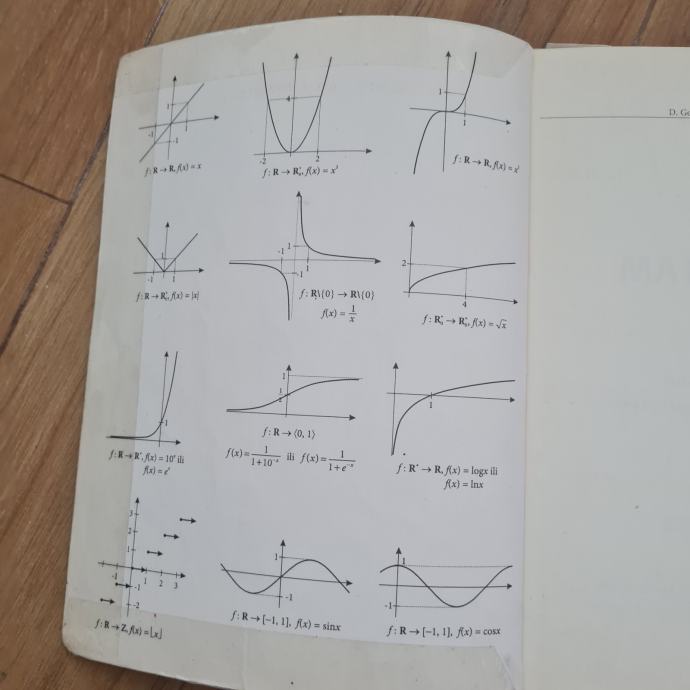 1
-1
1
-1
f : R → R, f(x) = x
4
-2
2
f : R → R₀⁺, f(x) = x²
1
1
f : R → R, f(x) = x³
D. Go
1
-1
1
f : R → R₀⁺, f(x) = |x|
-1
1
1
-1
f : R\{0} → R\{0}
f(x) = 1/x
2
4
f : R₀⁺ → R₀⁺, f(x) = √x
1
f : R → R⁺, f(x) = 10ˣ ili
f(x) = eˣ
1
1/2
f : R → ⟨0, 1⟩
f(x) = 1/(1+10⁻ˣ) ili f(x) = 1/(1+e⁻ˣ)
1
f : R⁺ → R, f(x) = logx ili
f(x) = lnx
3
2
1
-1
1
2
3
-1
-2
f : R → Z, f(x) = ⌊x⌋
1
-1
f : R → [−1, 1], f(x) = sinx
1
-1
f : R → [−1, 1], f(x) = cosx